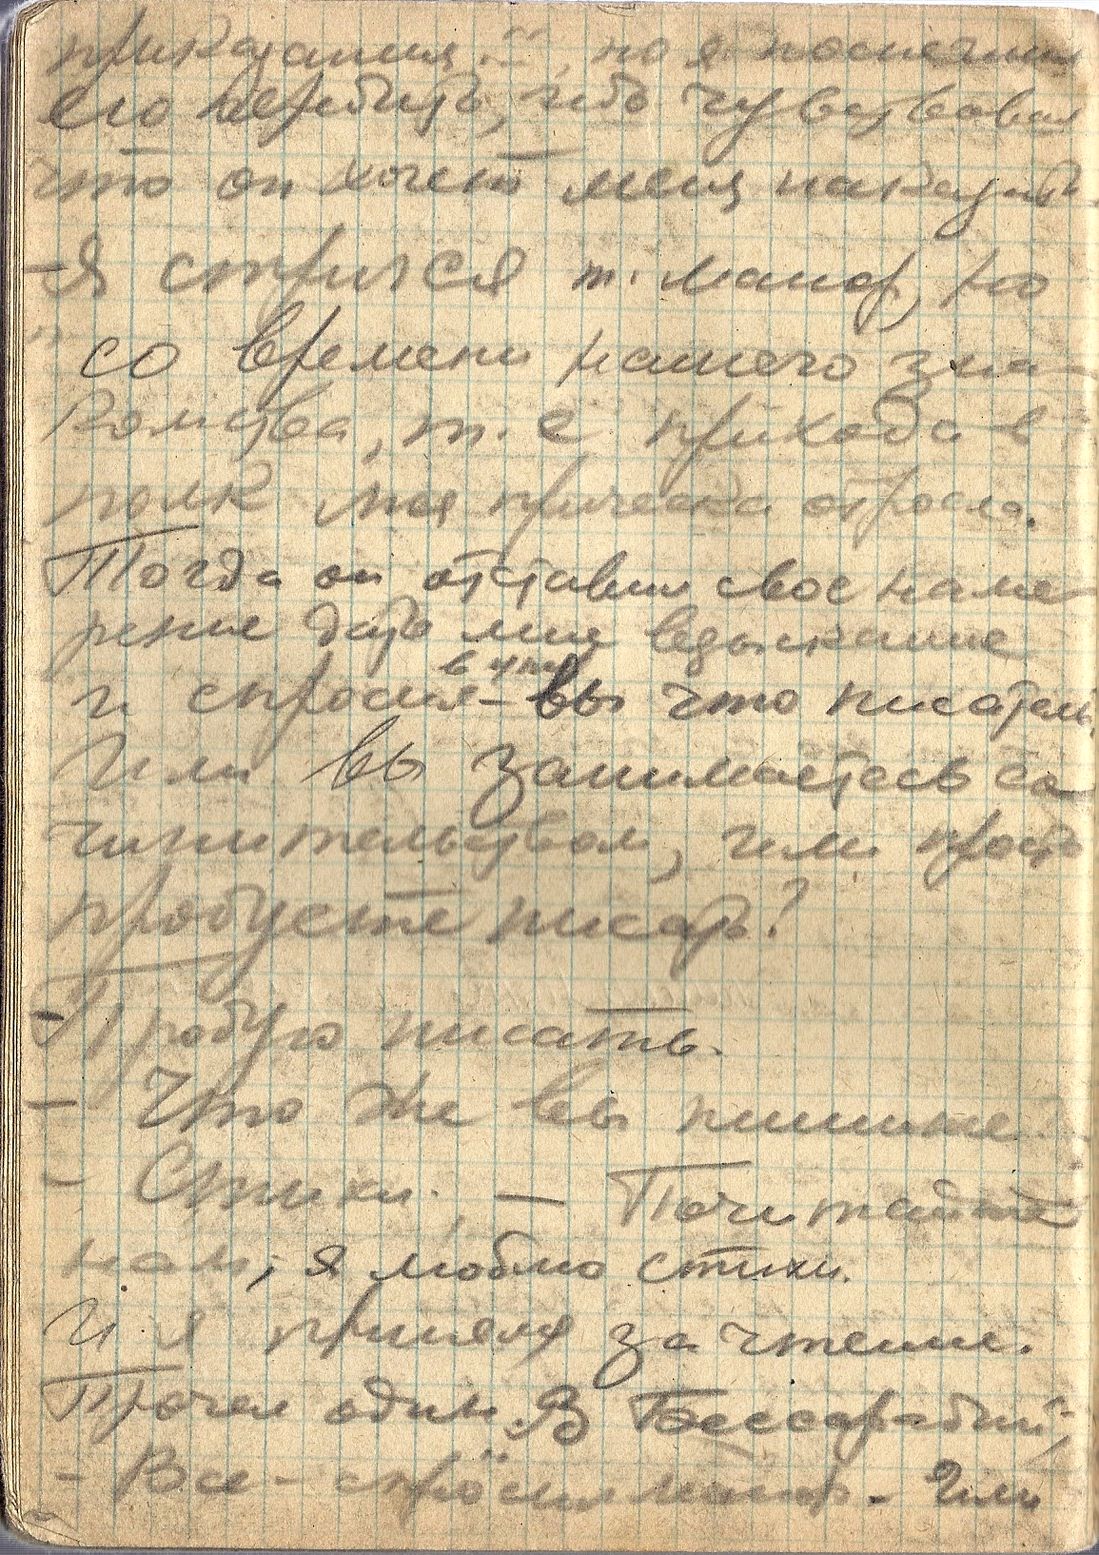 приказания ..., но я поспешил
его перебить, ибо чувствовал
что он хочет меня наказать.
- Я стригся т. маиор, но
со времени нашего зна-
комства, т. е прихода в
полк моя прическа отросла.
Тогда он отставил свое наме-
рение дать мне взыскание
и спросил - вы что писатель
Или вы занимаетесь со
чинительством, или просто
пробуете писать?
- Пробую писать.
- Что же вы пишите?
- Стихи. - Почитайте
нам, я люблю стихи.
И я принялся за чтение.
Прочел один. В Бессарабии,
- Все - спросил маиор. - Или